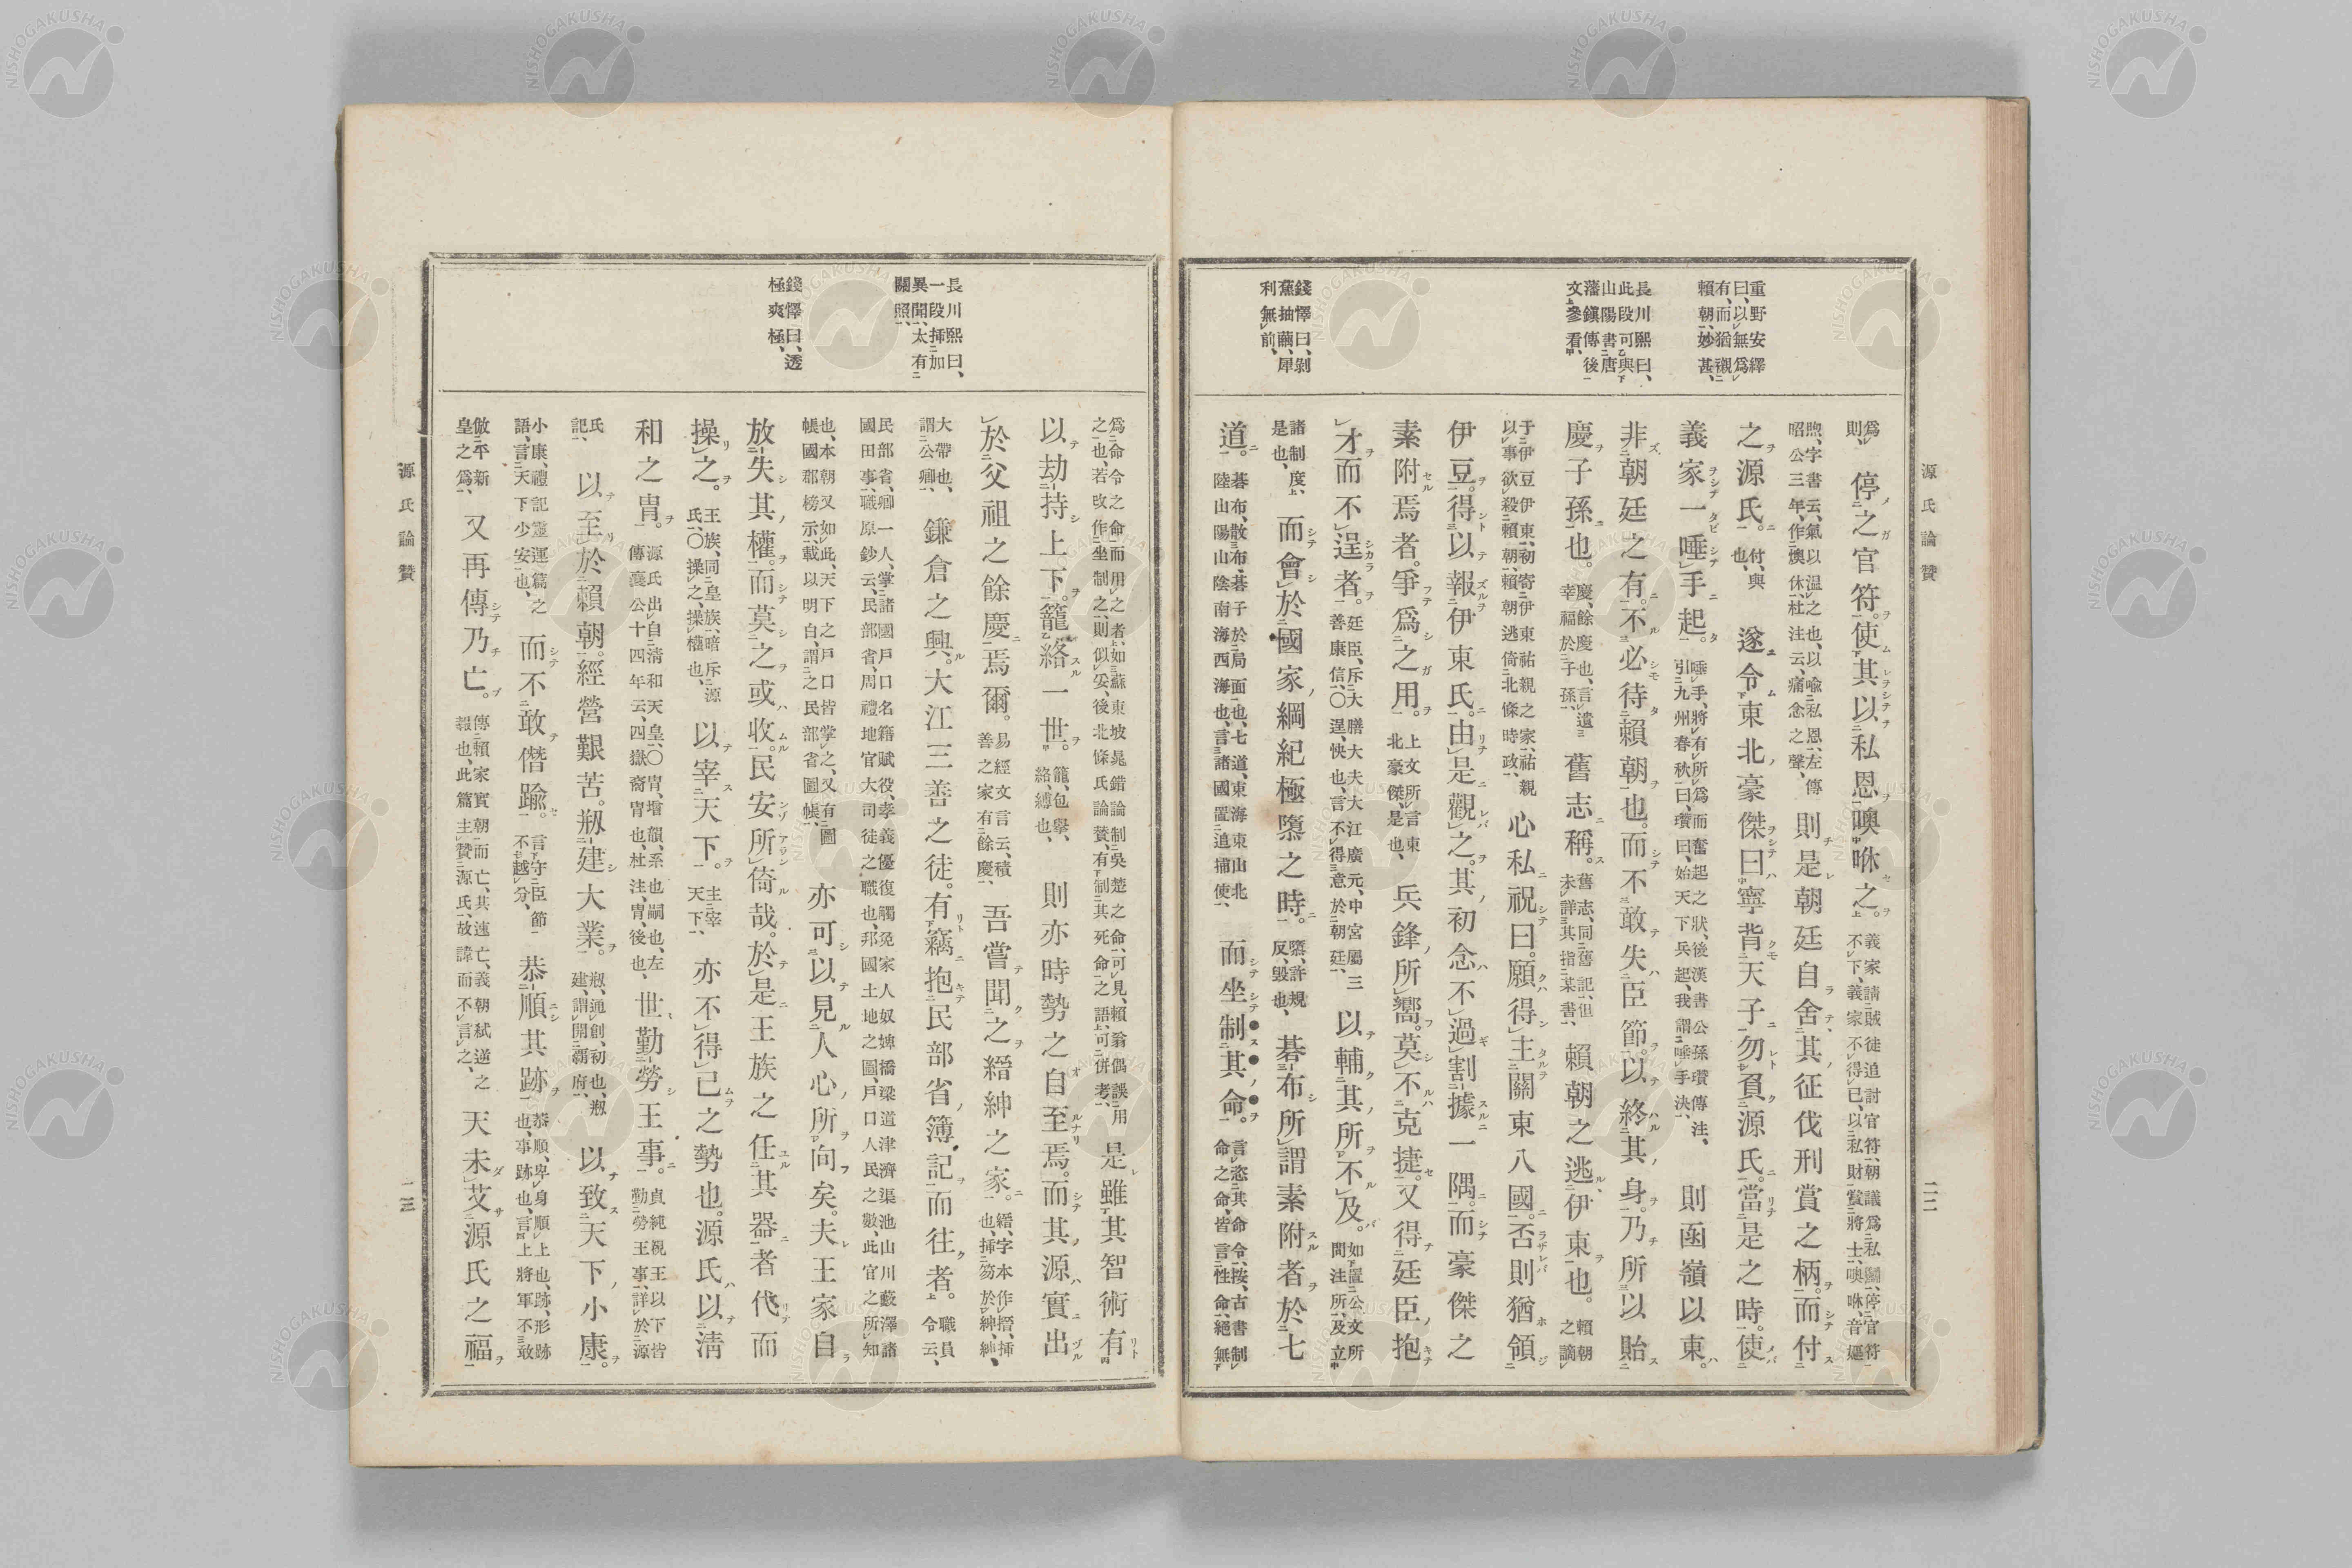 源氏論贊
二二
重野安繹
曰、以無爲
有、而猶襯
賴朝、妙甚、
長川熙曰、
此段可與
山陽書唐
藩鎭傳後
文參看、
錢懌曰、剝
蕉抽繭、犀
利無前、
爲則、停之官符。使其以私恩噢咻之。義家請賊徒追討官符、朝議爲私鬪、停官符不下、義家不得已、以私財賞將士、噢咻、音嫗
煦、字書云、氣以溫之也、以喩私恩、左傳昭公三年、作燠休、杜注云、痛念之聲、則是朝廷自舍其征伐刑賞之柄。而付
之源氏。付、與也、遂令東北豪傑曰寧背天子勿負源氏。當是之時。使
義家一唾手起。唾手、將有所爲而奮起之狀、後漢書公孫瓚傳注、引九州春秋曰、瓚曰、始天下兵起、我謂唾手決、則函嶺以東。
非朝廷之有。不必待賴朝也。而不敢失臣節。以終其身。乃所以貽
慶子孫也。慶、餘慶也、言遺幸福於子孫、舊志稱。舊志、同舊記、但未詳其指某書、賴朝之逃伊東也。賴朝之謫
于伊豆伊東、初寄伊東祐親之家、祐親以事欲殺賴朝、賴朝逃倚北條時政、心私祝曰。願得主關東八國。否則猶領
伊豆。得以報伊東氏。由是觀之。其初念不過割據一隅。而豪傑之
素附焉者。爭爲之用。上文所言東北豪傑、是也、兵鋒所嚮。莫不克捷。又得廷臣抱
才而不逞者。廷臣、斥大膳大夫大江廣元、中宮屬三善康信、〇逞、快也、言不得意於朝廷、以輔其所不及。如置公文所問注所、及立
諸制度、是也、而會於國家綱紀極隳之時。隳、許規反、毀也、碁布所謂素附者於七
道。碁布、散布碁子於局面也、七道、東海東山北陸山陽山陰南海西海也、言諸國置追捕使、而坐制其命。言恣其命令、按、古書制命之命、皆言性命、絕無
長川熙曰、
一段挿加
異聞、太有
關照、
錢懌曰、透
極爽極、
爲命令之命而用之者、如蘇東坡鼂錯論制吳楚之命、可見、賴翁偶誤用之也、若改作坐制之、則似妥、後北條氏論贊、有制其死命之語、可併考、是雖其智術有
以劫持上下。籠絡一世。籠、包擧、絡、縛也、則亦時勢之自至焉。而其源實出
於父祖之餘慶焉爾。易經文言云、積善之家有餘慶、吾嘗聞之縉紳之家。縉、字本作搢、挿也、挿笏於紳、紳、
大帶也、謂公卿、鎌倉之興。大江三善之徒。有竊抱民部省簿記而往者。職員令云、
民部省、卿一人、掌諸國戶口名籍賦役、孝義優復觸免家人奴婢橋梁道津濟渠池山川藪澤諸國田事、職原鈔云、民部省、周禮地官大司徒之職也、邦國土地之圖、戶口人民之數、此官之所知
也、本朝又如此、天下之戶口皆掌之、又有圖帳、國郡榜示、載以明白、謂之民部省圖帳、亦可以見人心所向矣。夫王家自
放失其權。而莫之或收。民安所倚哉。於是王族之任其器者代而
操之。王族、同皇族、暗斥源氏、〇操之、操權也、以宰天下。主宰天下、亦不得已之勢也。源氏以淸
和之冑。源氏出自淸和天皇、〇冑、增韻、系也、嗣也、左傳襄公十四年云、四嶽裔冑也、杜注、冑、後也、世勤勞王事。貞純親王以下皆勤勞王事、詳於源
氏記、以至於賴朝。經營艱苦。刱建大業。刱、通創、初也、刱建、謂開霸府、以致天下小康。
小康、禮記禮運篇之語、言天下少安也、而不敢僭踰。言守臣節不越分、恭順其跡。恭順、卑身順上也、跡、形跡也、事跡也、言上將軍不敢
倣平新皇之爲、又再傳乃亡。傳賴家實朝而亡、其速亡、義朝弒逆之報也、此篇主贊源氏、故諱而不言之、天未艾源氏之福
源氏論贊
二三
NISHOGAKUSHA